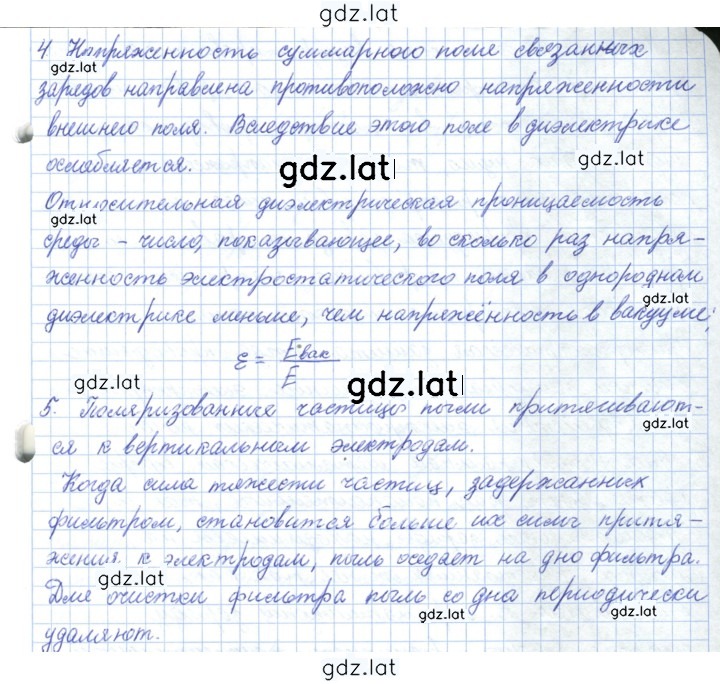 gdz.lat
4 Напряженность суммарного поле связанных
gdz.lat
зарядов направлена противоположно напряженности
внешнего поля. Вследствие этого поле в диэлектрике
ослабляется.
gdz.lat
gdz.lat
Относительная диэлектрическая проницаемость
gdz.lat
среды - число, показывающее, во сколько раз напря-
женность электростатического поля в однородном
gdz.lat
диэлектрике меньше, чем напряжённость в вакууме:
ε = Eвак / E
gdz.lat
gdz.lat
5. Поляризованные частицы пыли притягивают-
gdz.lat
ся к вертикальным электродам.
Когда сила тяжести частиц, задержанных
фильтром, становится больше их силы притя-
жения к электродам, пыль оседает на дно фильтра.
gdz.lat
Для очистки фильтра пыль со дна периодически
gdz.lat
gdz.lat
удаляют.
gdz.lat